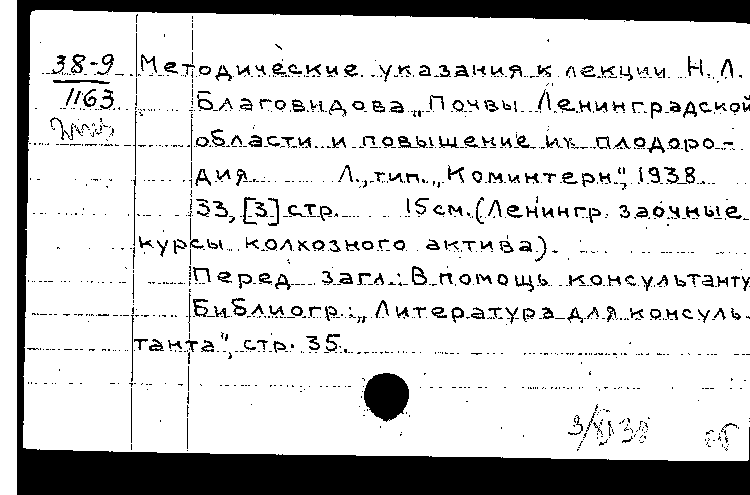 38-9 Методические указания к лекции Н. Л.
1163 Благовидова „Почвы Ленинградской
области и повышение их плодоро-
дия. Л., тип. „Коминтерн", 1938.
33, [3] стр. 15 см. (Ленингр. заочные
курсы колхозного актива).
Перед загл.: В помощь консультанту
Библиогр.: „Литература для консуль-
танта", стр. 35.